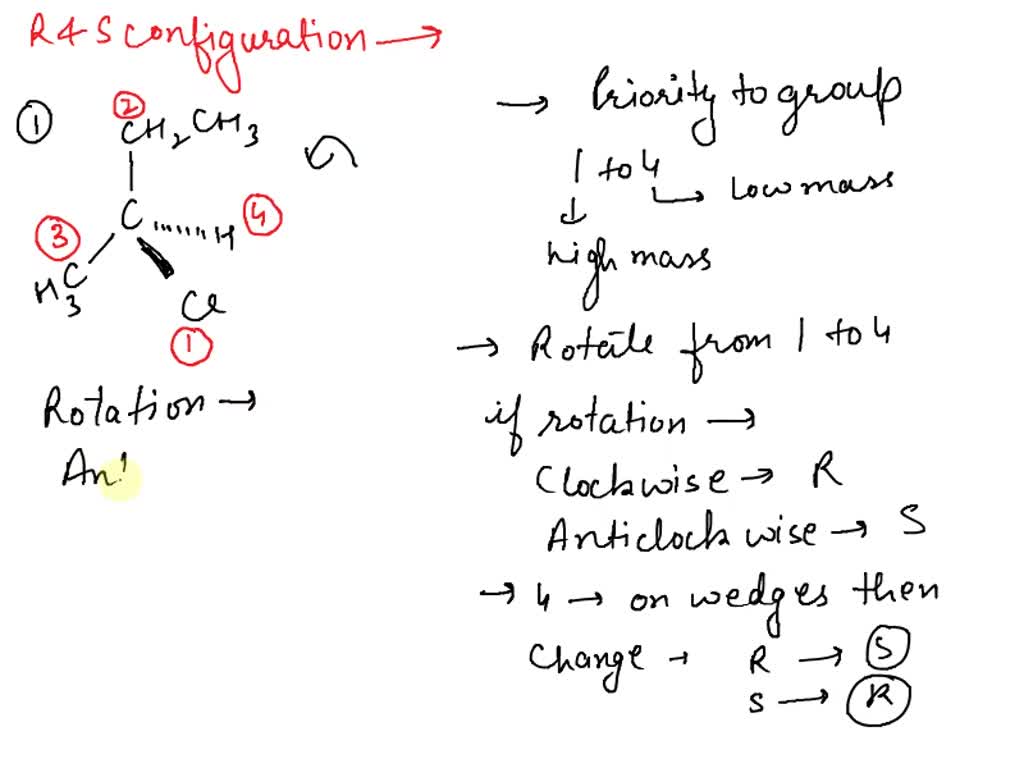 R & S configuration →
①
②
CH₂CH₃
C
H
④
③
H₃C
Cl
①
Rotation →
Ant
→ Priority to group
1 to 4
↓ ↳ Low mass
high mass
→ Rotate from 1 to 4
if rotation →
Clockwise → R
Anticlockwise → S
→ 4 → on wedges then
Change → R → Ⓢ
S → Ⓡ